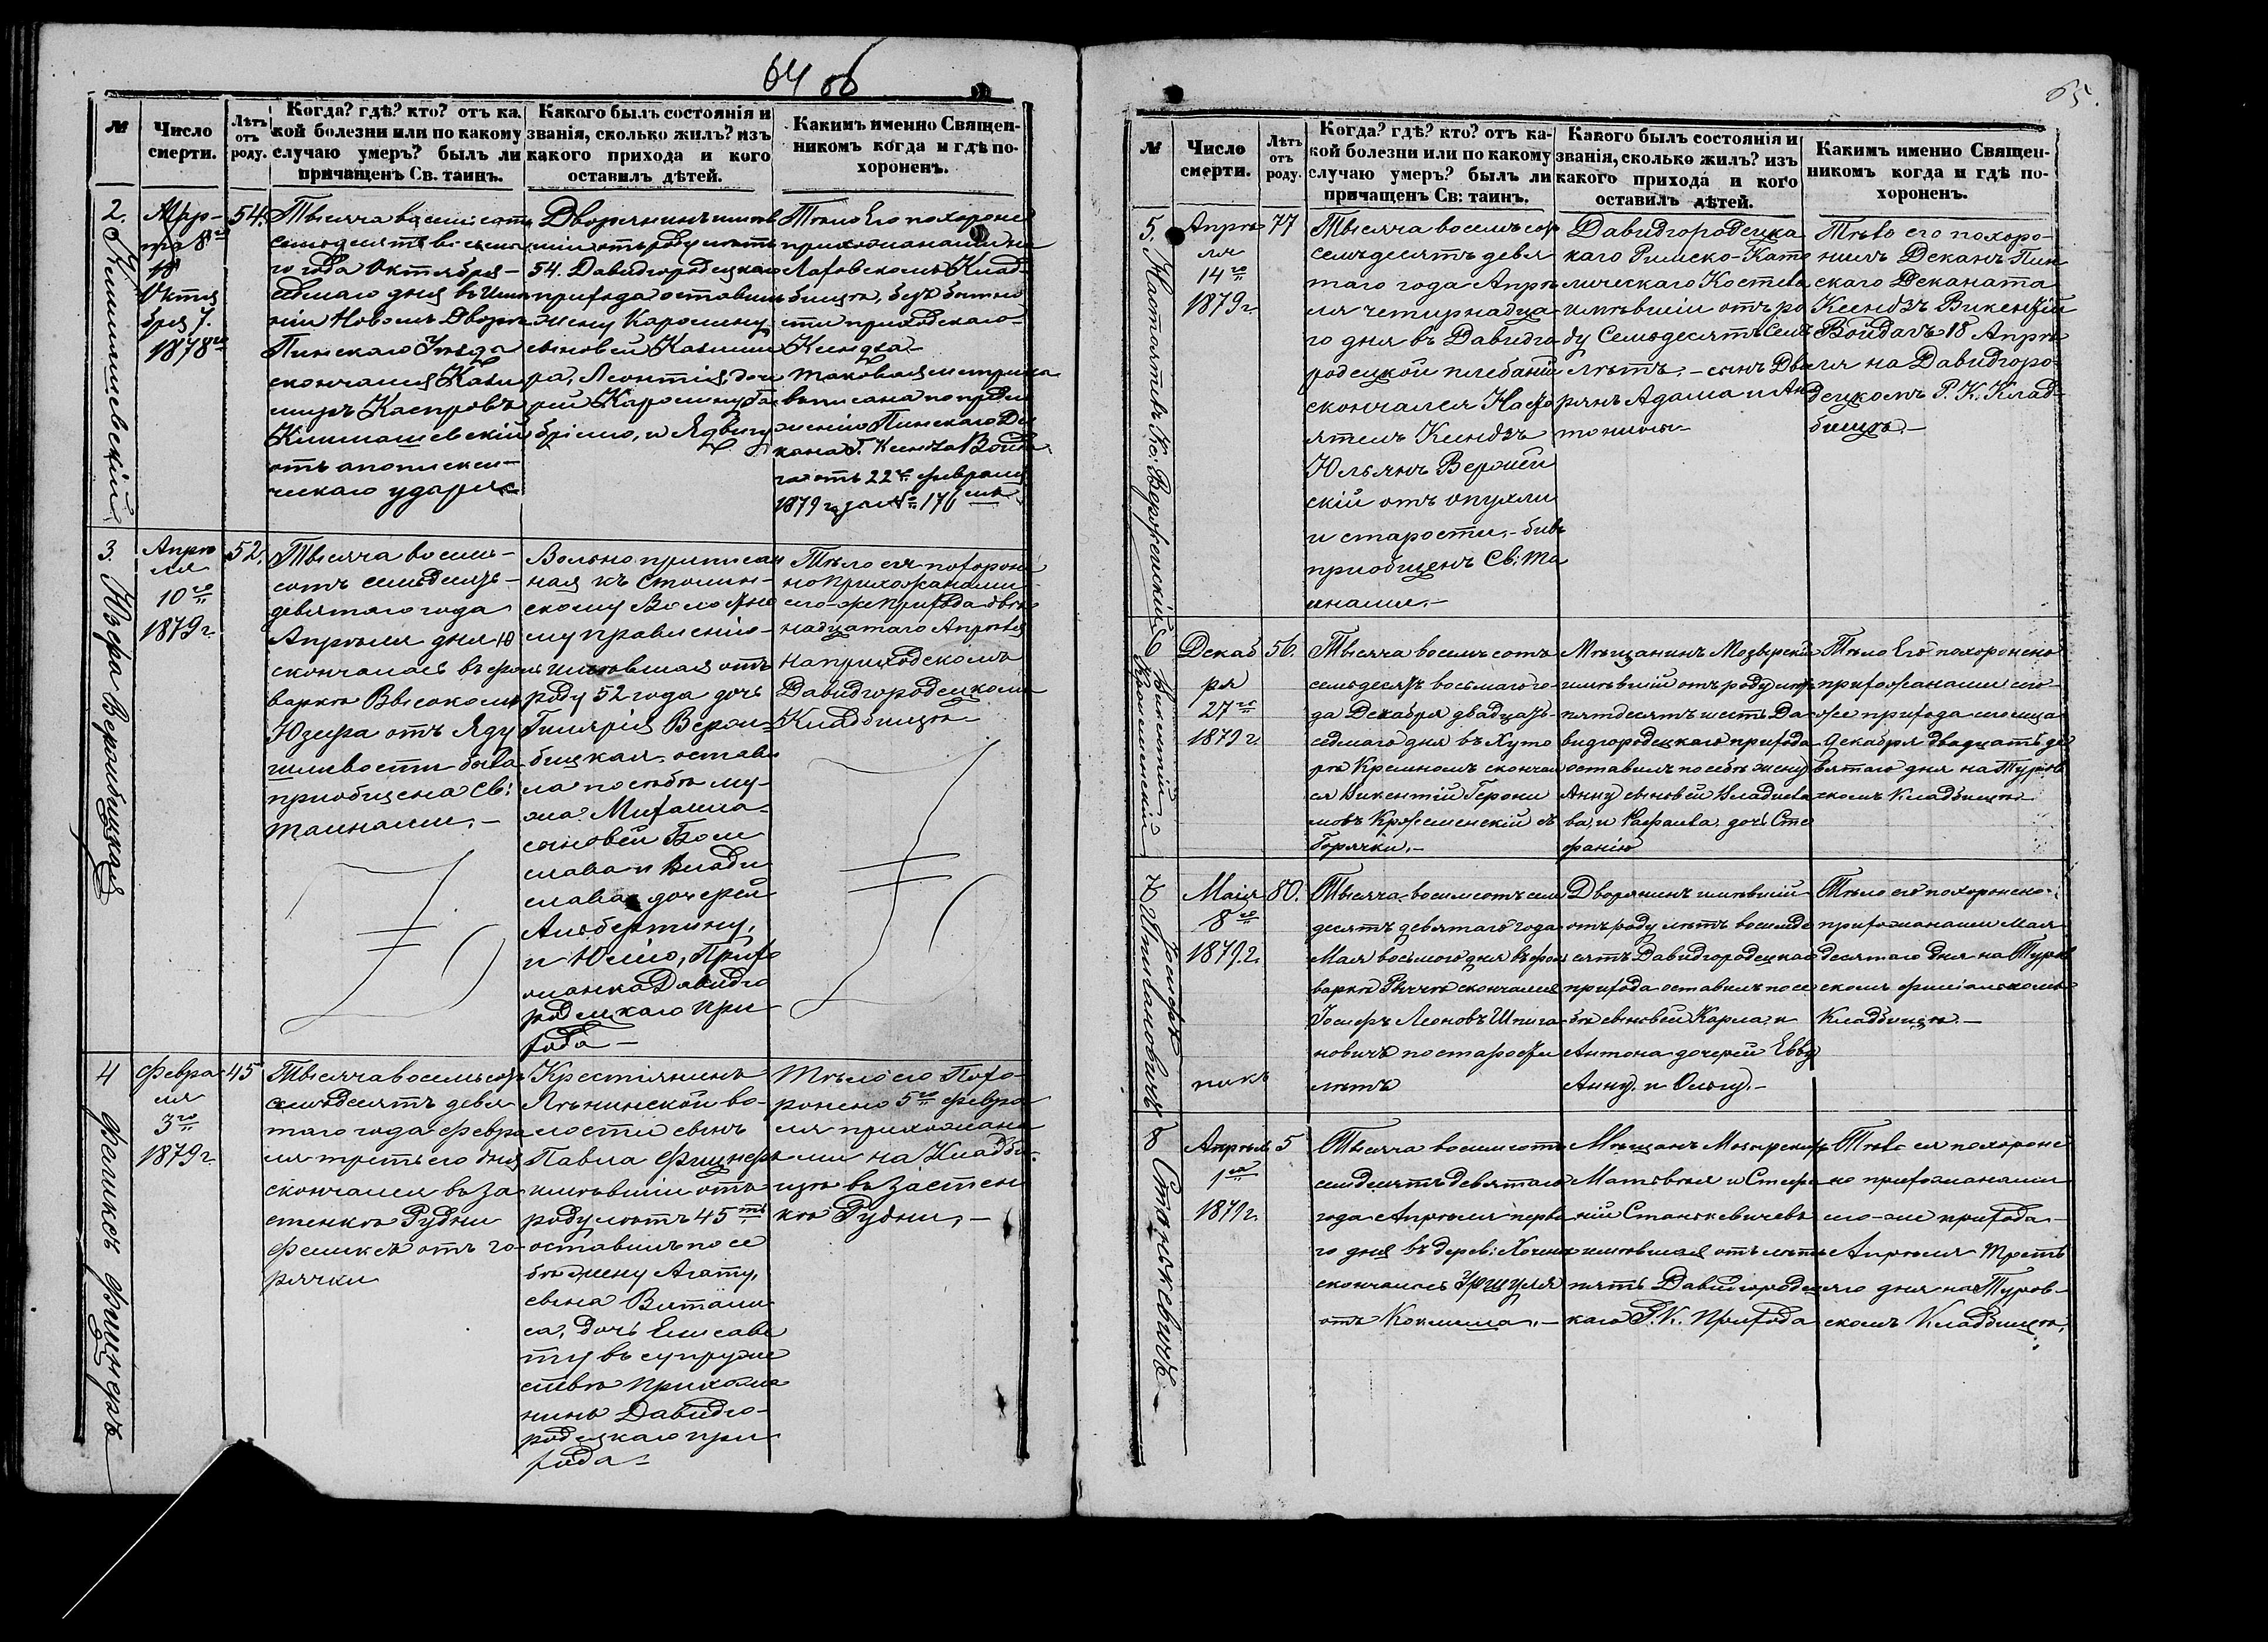 64 об
№
Число
смерти.
Лѣтъ
отъ
роду.
Когда? гдѣ? кто? отъ ка.
кой болезни или по какому
случаю умеръ? былъ ли
причащенъ Св. таинъ.
Какого былъ состоянія и
званія, сколько жилъ? изъ
какого прихода и кого
оставилъ дѣтей.
Какимъ именно Священ-
никомъ когда и гдѣ по-
хороненъ.
2.
Климашевскій
Мар-
та 8го
18
Октя
бря 7.
1878го
54.
Тысяча восемьсотъ
семьдесятъ восьма
го года Октября
седмаго дня въ Име
ніи Новомъ Дворѣ
Пинскаго Уѣзда
скончался Кази
миръ Каспровъ
Климашевскій
отъ апоплекси-
ческаго удара
Дворянинъ имѣв
шій отъ роду лѣтъ
54. Давидгородецкаго
прихода оставилъ
жену Каролину
сыновей Казими
ра, Леонтія, доче
рей Каролину, Га
брієлю, и Ядвигу
Тѣло Его похоронен
прихожанами на
Лаховскомъ Клад-
бищѣ, безъ бытно
сти приходскаго
Ксендза
таковая метрика
вписана по предпи
санію Пинскаго Де
кана Г. Ксендза Войда
га отъ 22 февраля
1879 г. за № 176
3.
Юзефа Веромбицкая
Апрѣ
ля
10го
1879 г.
52.
Тысяча восемь-
сотъ семьдесятъ-
девятаго года
Апрѣля дня 10
скончалась въ фоль
варкѣ Высокомъ
Юзефа отъ Яду
шливости была
приобщена Св:
Таинами.-
Вольно приписан
ная къ Столин-
скому Волостно
му правленію-
имѣвшая отъ
роду 52 года дочь
Гилярія Верем-
бицкая, остави
ла по себѣ му-
жа Михаила
сыновей Боле
слава и Влади
слава дочерей
Альбертину,
и Юлію, Прихо
жанка Давидго
родецкаго при
хода-
Тѣло ея похороне
но Прихожанами
сего-же Прихода двѣ
надцатаго Апрѣля
на приходскомъ
Давидгородецкомъ
Кладбищѣ
4
Феликсъ Фишнеръ
Февра
ля
3го
1879 г.
45
Тысяча восемьсотъ
семьдесятъ девя
таго года февра
ля третьего дня
скончался въ за
стенкѣ Рудни
Феликсъ отъ го
рячки
Крестіянинъ
Лѣнинской во-
лости сынъ
Павла Фишнеръ
имѣвшій отъ
роду лѣтъ 45ть
оставилъ по се
бѣ жену Агату,
сына Витали
са, дочь Елисаве
ту въ супруже
ствѣ прихожа
нинъ Давидго-
родецкаго при
хода-
Тѣло его Похо-
ронено 5го февра
ля прихожана
ми на Кладби-
щѣ въ Застен
кѣ Рудни,-
65.
№
Число
смерти.
Лѣтъ
отъ
роду.
Когда? гдѣ? кто? отъ ка-
кой болезни или по какому
случаю умеръ? былъ ли
причащенъ Св: таинъ.
Какого былъ состоянія и
званія, сколько жилъ? изъ
какого прихода и кого
оставилъ дѣтей.
Какимъ именно Священ-
никомъ когда и гдѣ по-
хороненъ.
5.
Настоятель Кс:
Апрѣ
ля
14го
1879 г.
77
Тысяча восемьсотъ
семьдесятъ девя
таго года Апрѣ
ля четырнадца
го дня въ Давидго
родецкой плебаніи
скончался Насто
ятель Ксендзъ
Юльянъ
скій отъ опухли
и старости,- бывъ
приобщенъ Св: Та
инами.-
Давидгородецка
каго Римско-Като
лическаго Костела
имѣвшій отъ ро
ду Семьдесятъ Семь
лѣтъ,- сынъ Дво
рянъ Адама и Ан
тонины-
Тѣло его похоро-
нилъ Деканъ Пин
скаго Деканата
Ксендзъ Викентій
Войдагъ 18 Апрѣ
ля на Давидгоро-
децкомъ Р. К. Клад-
бищѣ.-
6
Викентій
Декаб
ря
27го
1879 г.
56.
Тысяча восемьсотъ
семьдесятъ восьмаго го-
да Декабря двадцать-
седмаго дня въ Хуто
рѣ Кремномъ скончал
ся Викентій Герони
мовъ съ
Горячки.-
Мѣщанинъ Мозырскій
имѣвшій отъ роду лѣтъ
пятдесятъ шесть Да
видгородецкаго прихода
оставилъ по себѣ жену
Анну сыновей Владисла
ва, и Рафаила, дочь Сте
фанію
Тѣло Его похоронено
прихожанами сего-
же прихода мѣсяца
Декабря двадцать де
вятаго дня на Туров
скомъ Кладбищѣ
7
Іосифъ
Маія
8го
1879 г.
80.
Тысяча восемсотъ сем
десятъ девятаго года
Мая восьмого дня въ фоль
варкѣ Рычевѣ скончался
Іосифъ Леоновъ Шпига
новичъ по старости
лѣтъ
Дворянинъ имѣвшій
отъ роду лѣтъ восемде
сятъ Давидгородецкаго
прихода оставилъ по се
бѣ сыновей Карла, и
Антона дочерей Евву
Анну, и Ольгу.-
Тѣло его похоронено
прихожанами Мая
десятаго дня на Туров
скомъ филіальномъ
Кладбищѣ.-
8
Станькевичъ
Апрѣля
1го
1879 г.
5
Тысяча восемсотъ
семдесятъ девятаго
года Апрѣля перва
го дня въ дерев:
скончалась Уршуля
отъ Коклюша.-
Мѣщанъ Мозырскихъ
Матвѣя и Стефа
ніи Станькевичевъ
имѣвшая отъ лѣтъ
пять Давидгородец
каго Р.К. Прихода
Тѣло ея похороне
но прихожанами
сего-же прихода-
Апрѣля Треть
яго дня на Туров-
скомъ Кладбищѣ.